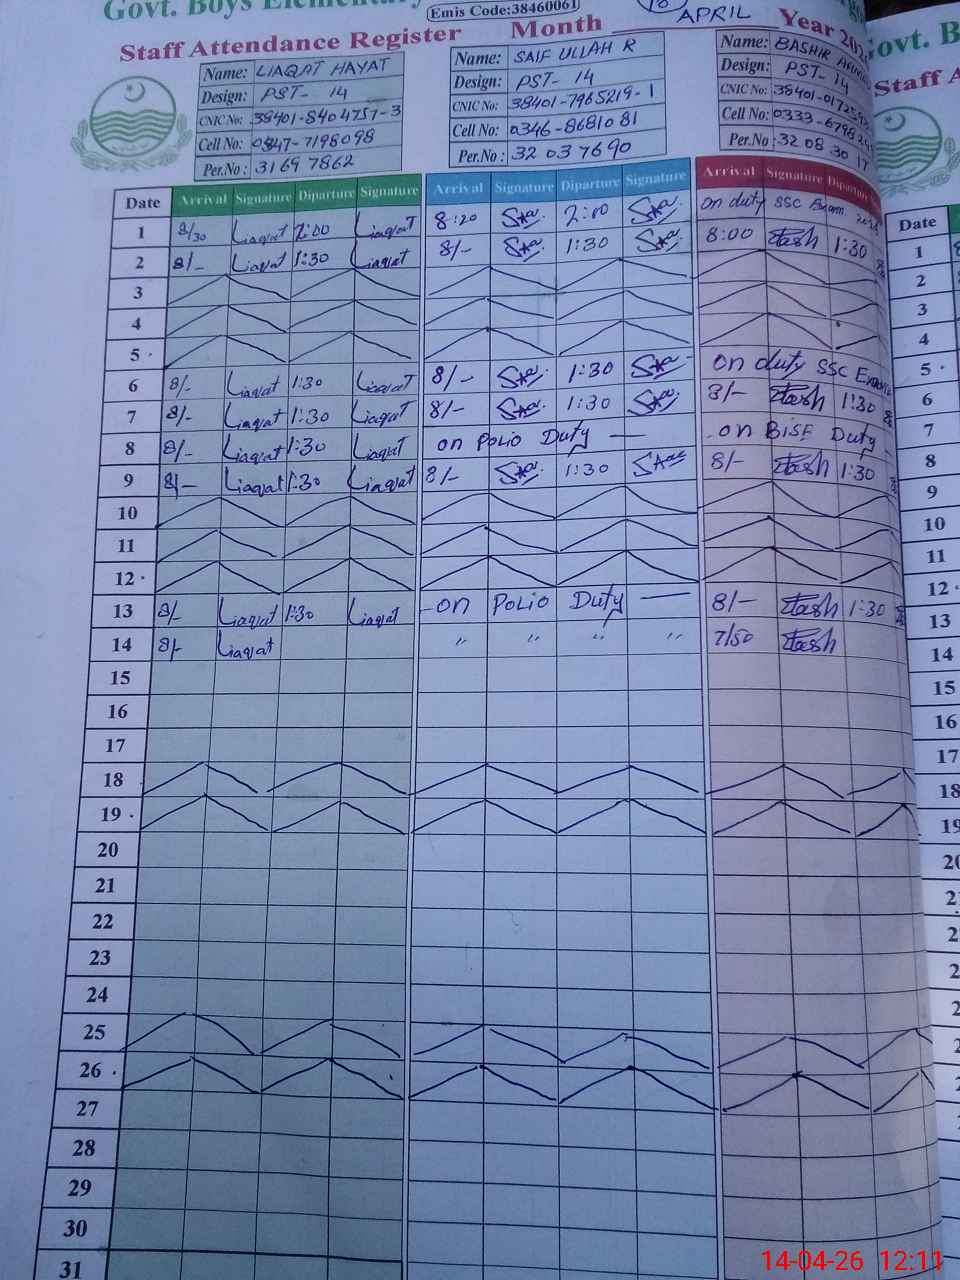 Govt. Boys Elementary
Emis Code:38460061
Staff Attendance Register Month APRIL Year 202
Name: LIAQAT HAYAT
Design: PST- 14
CNIC No: 38401-8404757-3
Cell No: 0347-7198098
Per.No: 31697862
Name: SAIF ULLAH R
Design: PST- 14
CNIC No: 38401-7965219-1
Cell No: 0346-8681081
Per.No: 32037690
Name: BASHIR
Design: PST- 14
CNIC No: 38401-01725
Cell No: 0333-6798
Per.No: 32 08 30 17
Date Arrival Signature Diparture Signature Arrival Signature Diparture Signature Arrival Signature Diparture
1 8/30 Liaqat 2:00 Liaqat 8:20 2:00 on duty SSC Exam
2 8/- Liaqat 1:30 Liaqat 8/- 1:30 8:00 1:30
3
4
5 ·
6 8/- Liaqat 1:30 Liaqat 8/- 1:30 on duty SSC Exam
7 8/- Liaqat 1:30 Liaqat 8/- 1:30 8/- 1:30
8 8/- Liaqat 1:30 Liaqat on Polio Duty — on BISE Duty
9 8/- Liaqat 1:30 Liaqat 8/- 1:30 8/- 1:30
10
11
12 ·
13 8/- Liaqat 1:30 Liaqat on Polio Duty — 8/- 1:30
14 8/- Liaqat " " " " 7/50
15
16
17
18
19 ·
20
21
22
23
24
25
26 ·
27
28
29
30
31
Govt. B
Staff A
Date
1
2
3
4
5 ·
6
7
8
9
10
11
12 ·
13
14
15
16
17
18
19
14-04-26 12:11